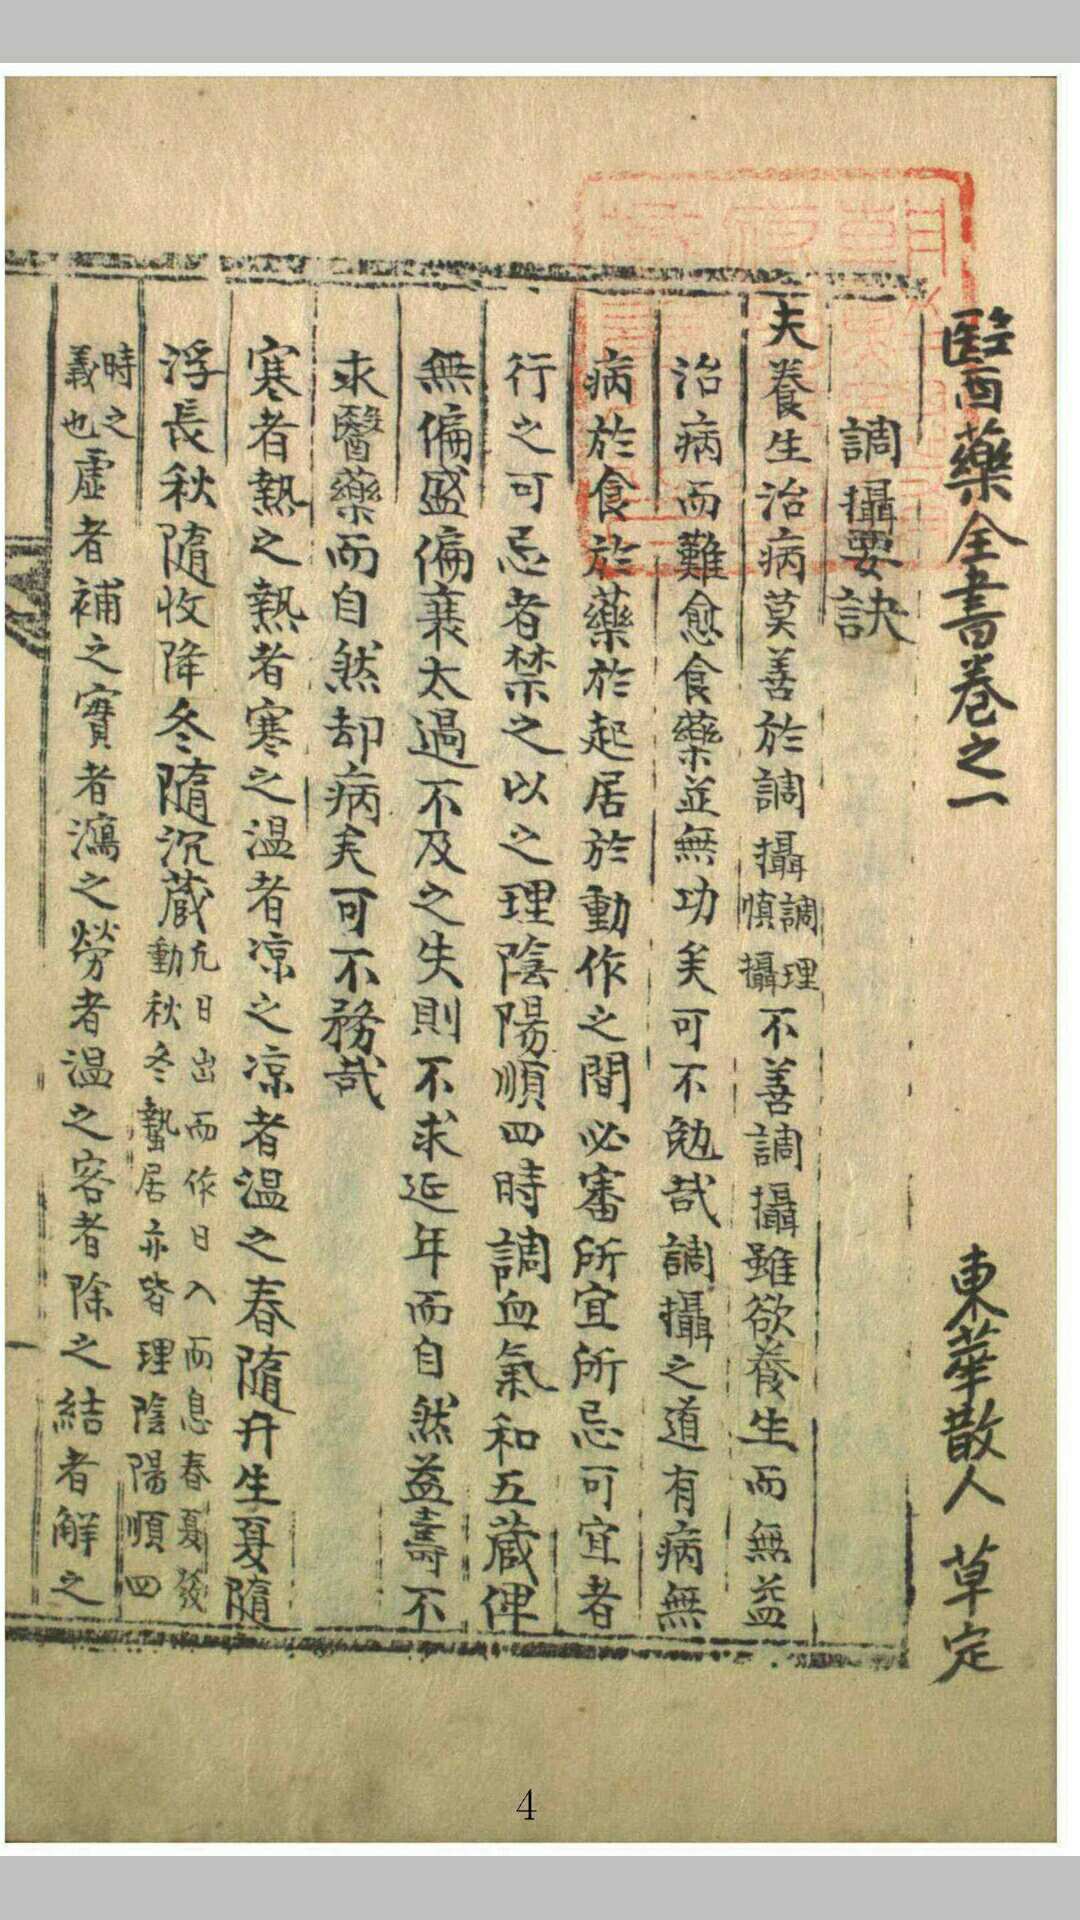 醫藥全書卷之一 東華散人 草定
調攝要訣
夫養生治病莫善於調攝調理慎攝不善調攝雖欲養生而無益
治病而難愈食藥並無功矣可不勉哉調攝之道有病無
病於食於藥於起居於動作之間必審所宜所忌可宜者
行之可忌者禁之以之理陰陽順四時調血氣和五蔵俾
無偏盛偏衰太過不及之失則不求延年而自然益壽不
求醫藥而自然却病矣可不務哉
寒者熱之熱者寒之温者凉之凉者温之春隨升生夏隨
浮長秋隨收降冬隨沉蔵凢日出而作日入而息春夏發動秋冬蟄居亦皆理陰陽順四
時之義也虛者補之實者瀉之勞者温之客者除之結者解之
4